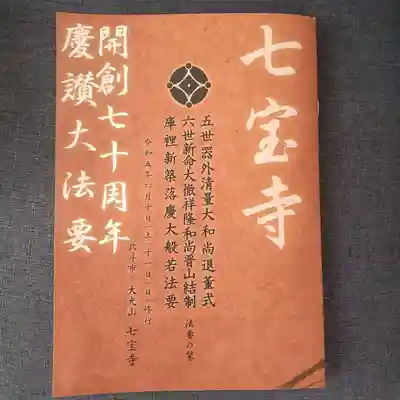 七宝寺
五世器外清量大和尚退董式
六世新命大徹祥隆和尚晋山結制
庫裡新築落慶大般若法要
法要の栞
令和五年六月十日(土)十一日(日)修行
北斗市 大光山 七宝寺
開創七十周年
慶讃大法要